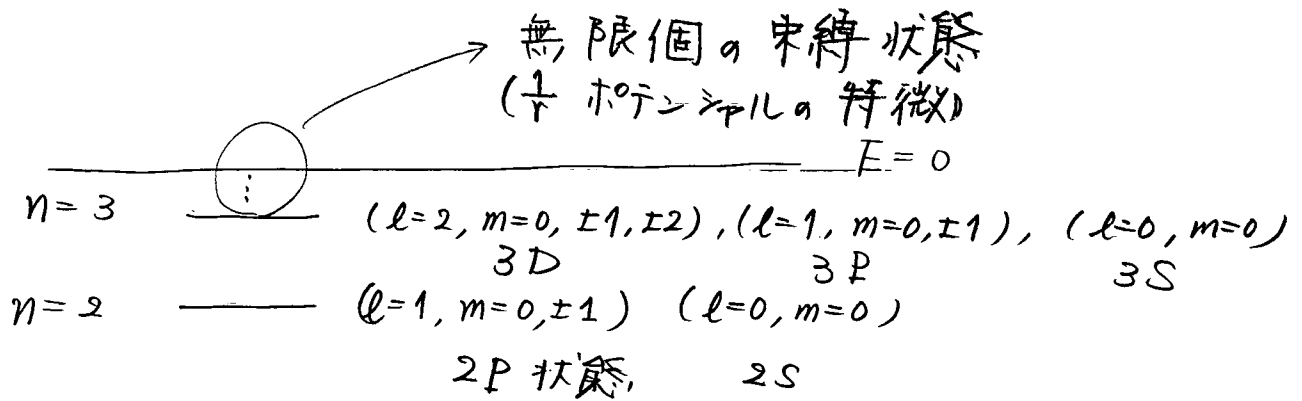 無限個の束縛状態
(1/r ポテンシャルの特徴)
E = 0
⋮
n = 3 (l=2, m=0, ±1, ±2), (l=1, m=0, ±1), (l=0, m=0)
3D 3P 3S
n = 2 (l=1, m=0, ±1) (l=0, m=0)
2P 状態, 2S